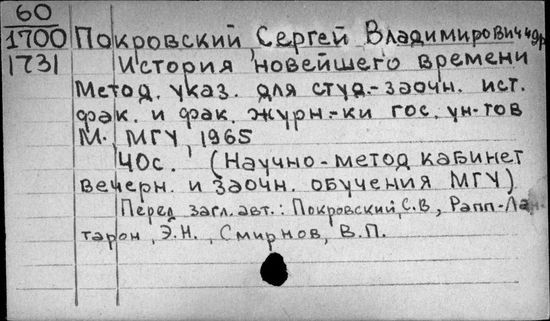 60
1700 Покровский, Сергей Владимирович и др
1731 История новейшего времени
Метод. указ. для студ.-заочн. ист.
фак. и фак. журн.-ки гос. ун-тов
М., МГУ, 1965
40с. (Научно-метод кабинет
вечерн. и заочн. обучения МГУ)
Перед загл. авт.: Покровский, С.В., Рапп-Лан-
тарон, Э.Н., Смирнов, В.П.